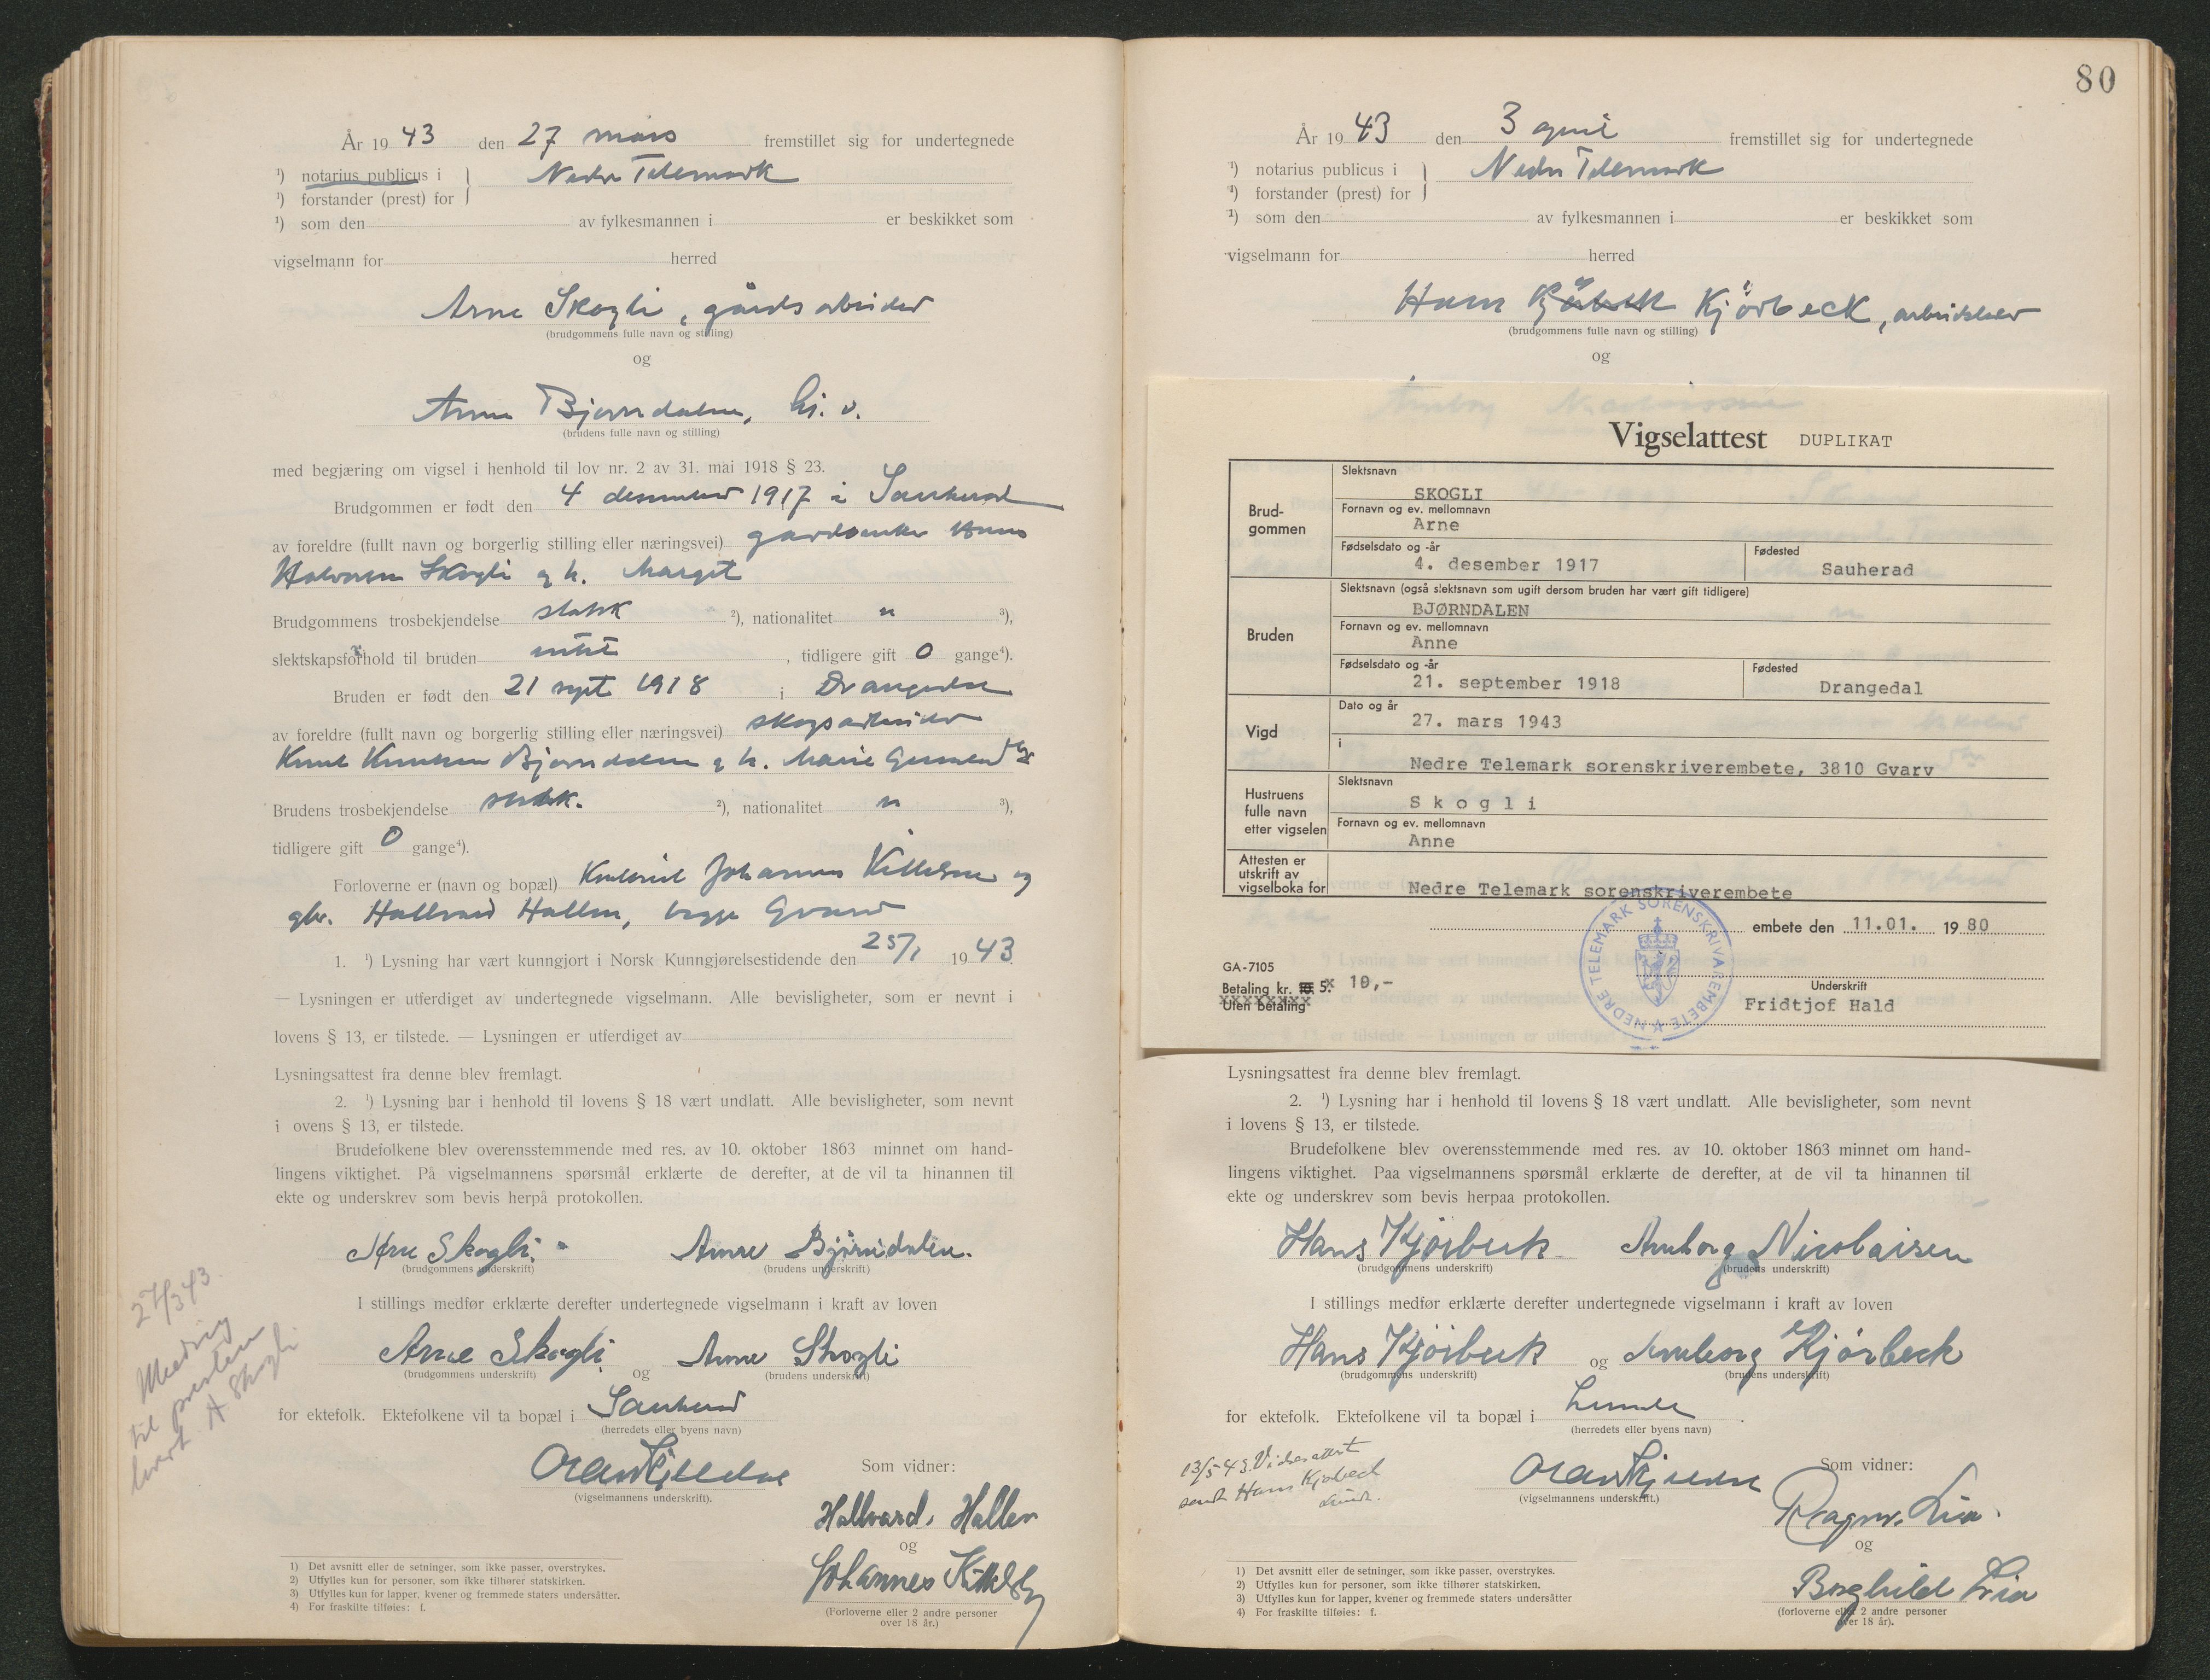 År 1943 den 27 mars fremstillet sig for undertegnede
¹) notarius publicus i Nedre Telemark
¹) forstander (prest) for
¹) som den av fylkesmannen i er beskikket som
vigselmann for herred
Arne Skogli, gårdsarbeider
(brudgommens fulle navn og stilling)
og
Anne Bjørndalen, hj. v.
(brudens fulle navn og stilling)
med begjæring om vigsel i henhold til lov nr. 2 av 31. mai 1918 § 23.
Brudgommen er født den 4 desember 1917 i Sauherad
av foreldre (fullt navn og borgerlig stilling eller næringsvei) gårdbruker Hans
Halvorsen Skogli og h. Margit
Brudgommens trosbekjendelse statsk ²), nationalitet n ³),
slektskapsforhold til bruden intet, tidligere gift 0 gange⁴).
Bruden er født den 21 sept 1918 i Drangedal
av foreldre (fullt navn og borgerlig stilling eller næringsvei) skogsarbeider
Knut Knutsen Bjørndalen og h. Marie
Brudens trosbekjendelse statsk. ²), nationalitet n ³),
tidligere gift 0 gange⁴).
Forloverne er (navn og bopæl) Johannes og
gbr. Hallvard Hallen, begge Gvarv
1. ¹) Lysning har vært kunngjort i Norsk Kunngjørelsestidende den 25/1 1943
— Lysningen er utferdiget av undertegnede vigselmann. Alle bevisligheter, som er nevnt i
lovens § 13, er tilstede. — Lysningen er utferdiget av
Lysningsattest fra denne blev fremlagt.
2. ¹) Lysning har i henhold til lovens § 18 vært undlatt. Alle bevisligheter, som nevnt
i ovens § 13, er tilstede.
Brudefolkene blev overensstemmende med res. av 10. oktober 1863 minnet om hand-
lingens viktighet. På vigselmannens spørsmål erklærte de derefter, at de vil ta hinannen til
ekte og underskrev som bevis herpå protokollen.
Arne Skogli. Anne Bjørndalen.
(brudgommens underskrift) (brudens underskrift)
I stillings medfør erklærte derefter undertegnede vigselmann i kraft av loven
Arne Skogli og Anne Skogli
(brudgommens underskrift) (brudens underskrift)
for ektefolk. Ektefolkene vil ta bopæl i Sauherad
(herredets eller byens navn)
(vigselmannens underskrift).
Som vidner:
Hallvard Hallen
og
Johannes Kittelsby
(Forloverne eller 2 andre personer
over 18 år.)
27/3 43
Melding
til presten
levert A Skogli
1) Det avsnitt eller de setninger, som ikke passer, overstrykes.
2) Utfylles kun for personer, som ikke tilhører statskirken.
3) Utfylles kun for lapper, kvener og fremmede staters undersåtter.
4) For fraskilte tilføies: f.
80
År 1943 den 3 april fremstillet sig for undertegnede
¹) notarius publicus i Nedre Telemark
¹) forstander (prest) for
¹) som den av fylkesmannen i er beskikket som
vigselmann for herred
Hans Kjörbeck, arbeidsløs
(brudgommens fulle navn og stilling)
og
Vigselattest DUPLIKAT
Brud-
gommen
Slektsnavn
SKOGLI
Fornavn og ev. mellomnavn
Arne
Fødselsdato og -år Fødested
4. desember 1917 Sauherad
Bruden
Slektsnavn (også slektsnavn som ugift dersom bruden har vært gift tidligere)
BJØRNDALEN
Fornavn og ev. mellomnavn
Anne
Fødselsdato og -år Fødested
21. september 1918 Drangedal
Vigd
Dato og år
27. mars 1943
i
Nedre Telemark sorenskriverembete, 3810 Gvarv
Hustruens
fulle navn
etter vigselen
Slektsnavn
S k o g l i
Fornavn og ev. mellomnavn
Anne
Attesten er
utskrift av
vigselboka for
Nedre Telemark sorenskriverembete
embete den 11.01. 1980
NEDRE TELEMARK SORENSKRIVAREMBETE
GA-7105
Betaling kr. 5. 10,-
Uten betaling
Underskrift
Fridtjof Hald
Lysningsattest fra denne blev fremlagt.
2. ¹) Lysning har i henhold til lovens § 18 vært undlatt. Alle bevisligheter, som nevnt
i lovens § 13, er tilstede.
Brudefolkene blev overensstemmende med res. av 10. oktober 1863 minnet om hand-
lingens viktighet. Paa vigselmannens spørsmål erklærte de derefter, at de vil ta hinannen til
ekte og underskrev som bevis herpaa protokollen.
Hans Kjörbeck Annborg Nicolaisen
(brudgommens underskrift) (brudens underskrift)
I stillings medfør erklærte derefter undertegnede vigselmann i kraft av loven
Hans Kjörbeck og Annborg Kjörbeck
(brudgommens underskrift) (brudens underskrift)
for ektefolk. Ektefolkene vil ta bopæl i Lunde.
(herredets eller byens navn)
13/5 43. Vielsesattest
sendt Hans Kjørbeck
Lunde.
(vigselmannens underskrift.)
Som vidner:
Ragnv. Lia.
og
Borghild Lia
(forloverne eller 2 andre personer
over 18 år).
1) Det avsnitt eller de setninger, som ikke passer, overstrykes.
2) Utfylles kun for personer, som ikke tilhører statskirken.
3) Utfylles kun for lapper, kvener og fremmede staters undersåtter
4) For fraskilte tilføies: f.